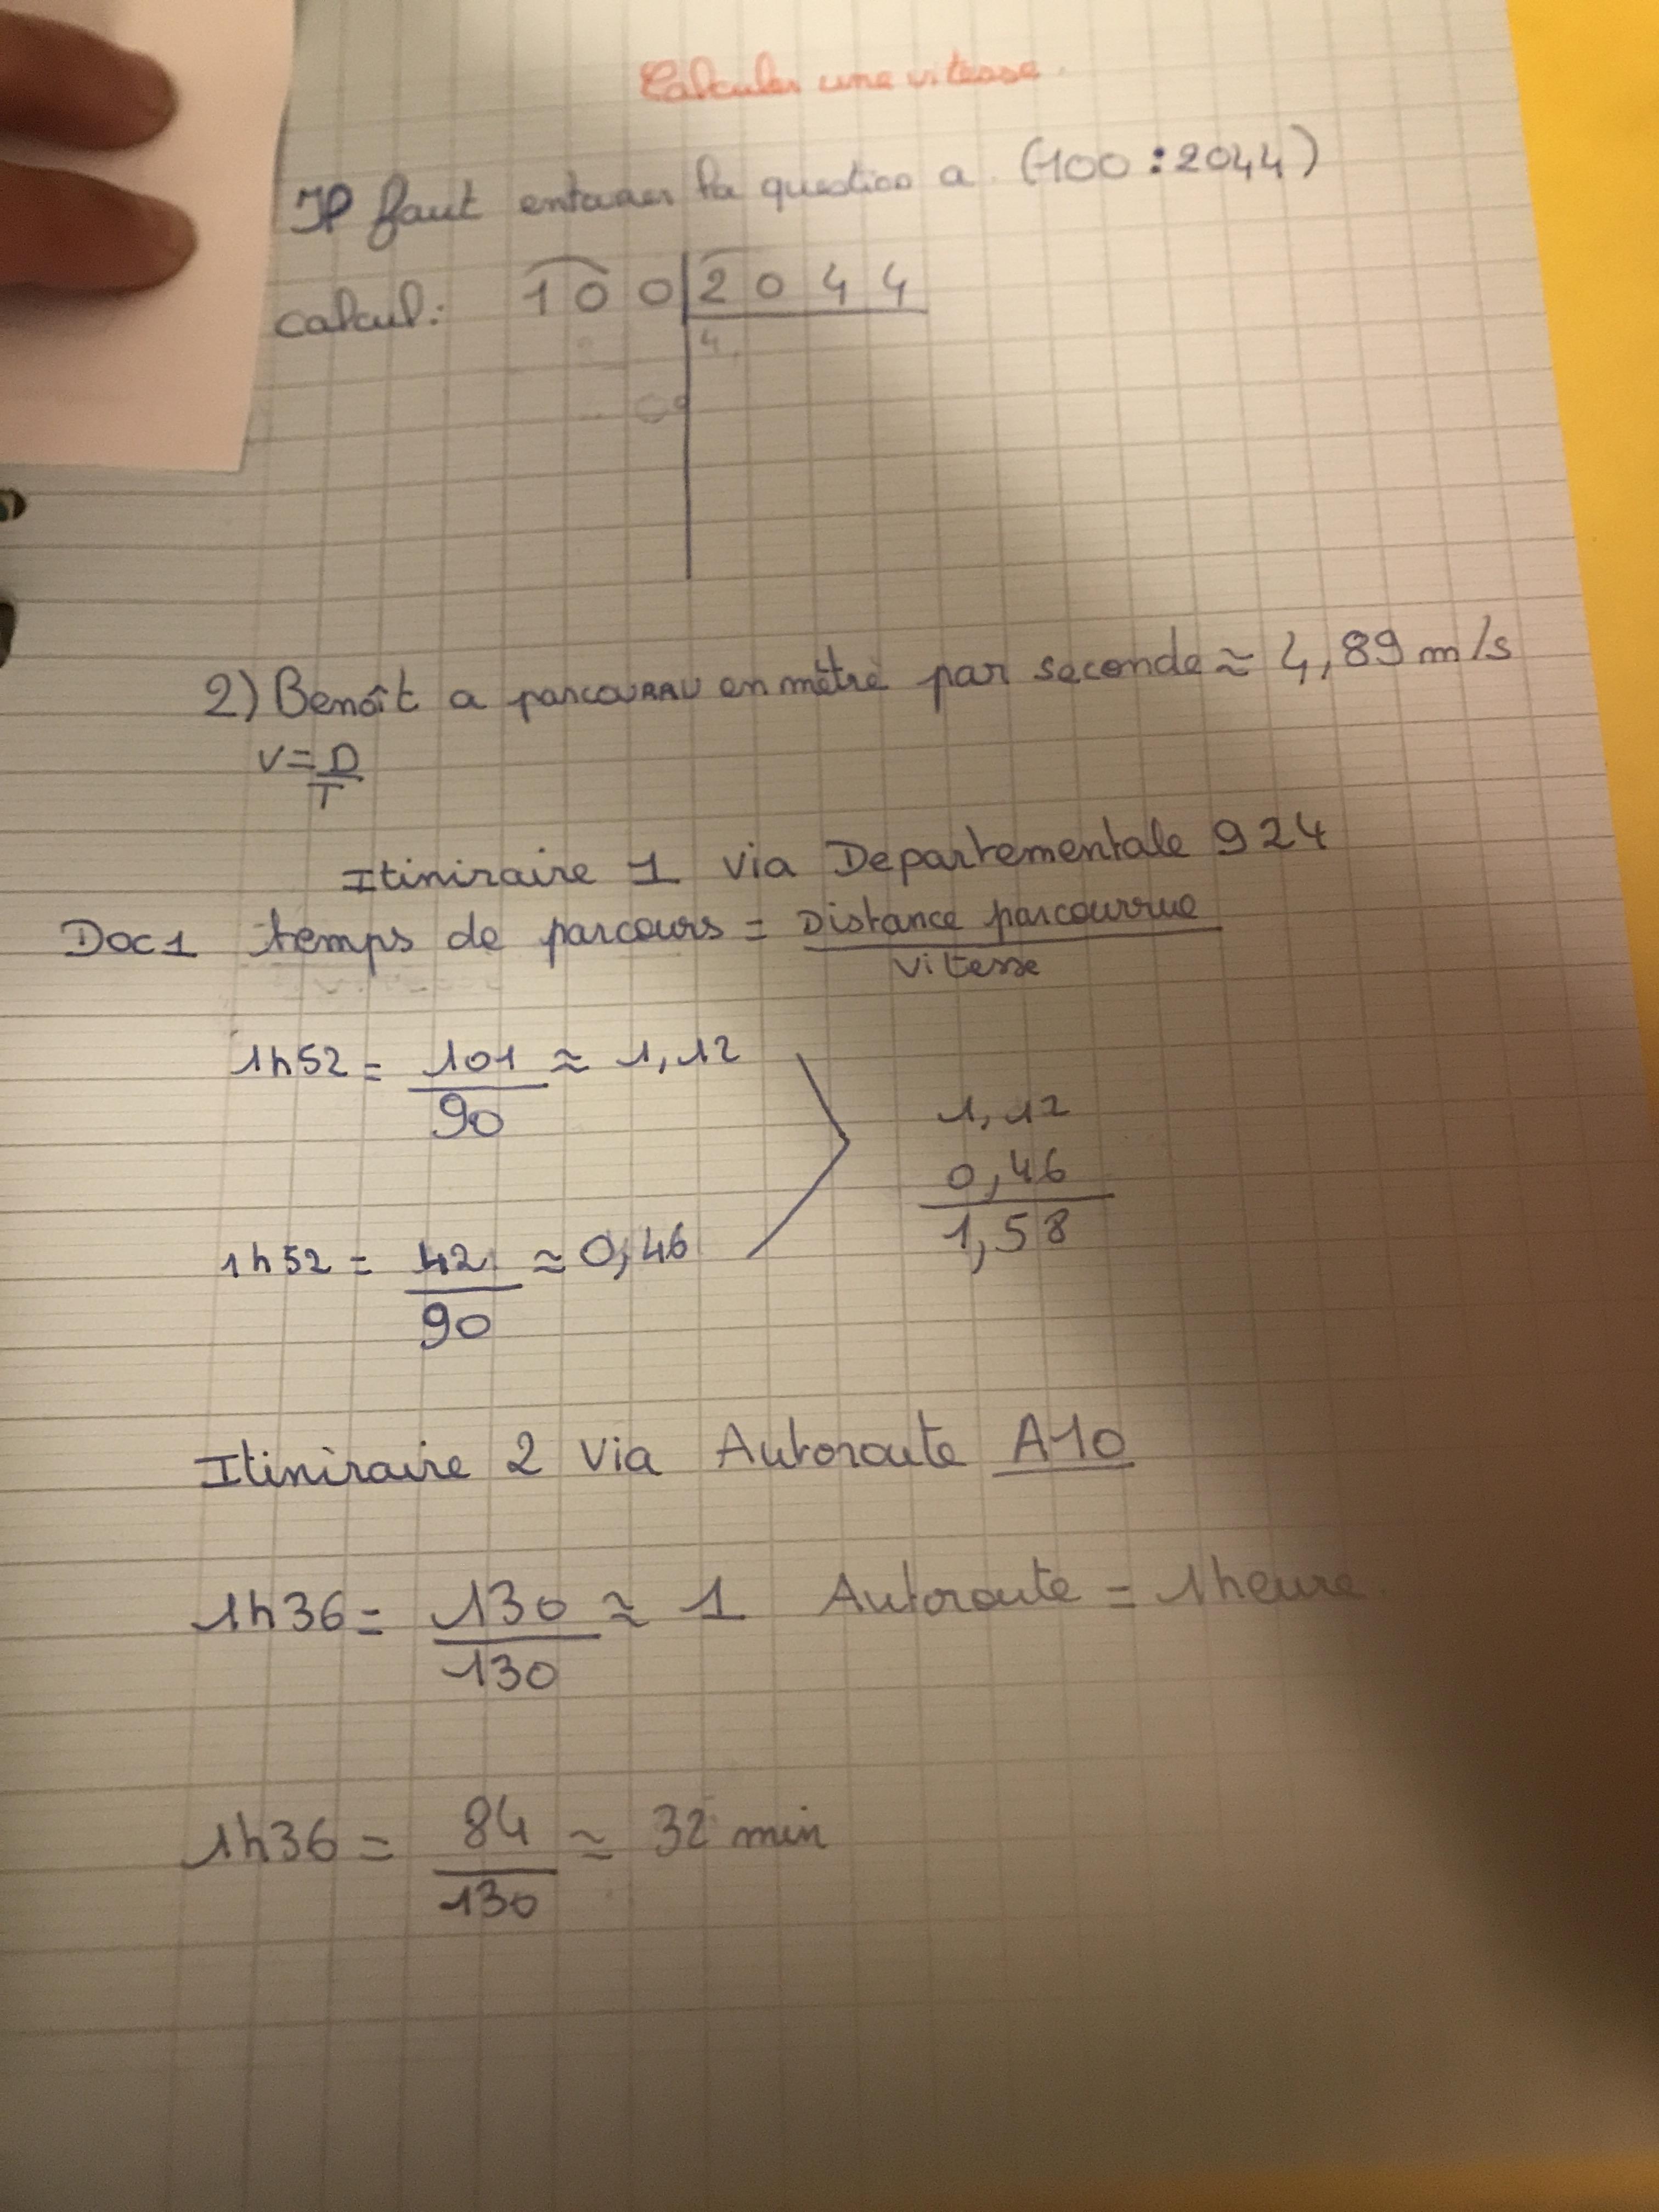 Calculer une vitesse.
Il faut entourer la question a. (100 : 2044)
calcul: 100 2044
4,
2) Benoît a parcourru en mètre par seconde ≈ 4,89 m/s
V = D
T
Itiniraire 1 via Departementale 924
Doc1 temps de parcours = Distance parcourrue
vitesse
1h52 = 101 ≈ 1,12
90
1,12
0,46
1,58
1h52 = 42 ≈ 0,46
90
Itiniraire 2 via Autoroute A10
1h36 = 130 ≈ 1 Autoroute = 1heure.
130
1h36 = 84 ≈ 32 min
130